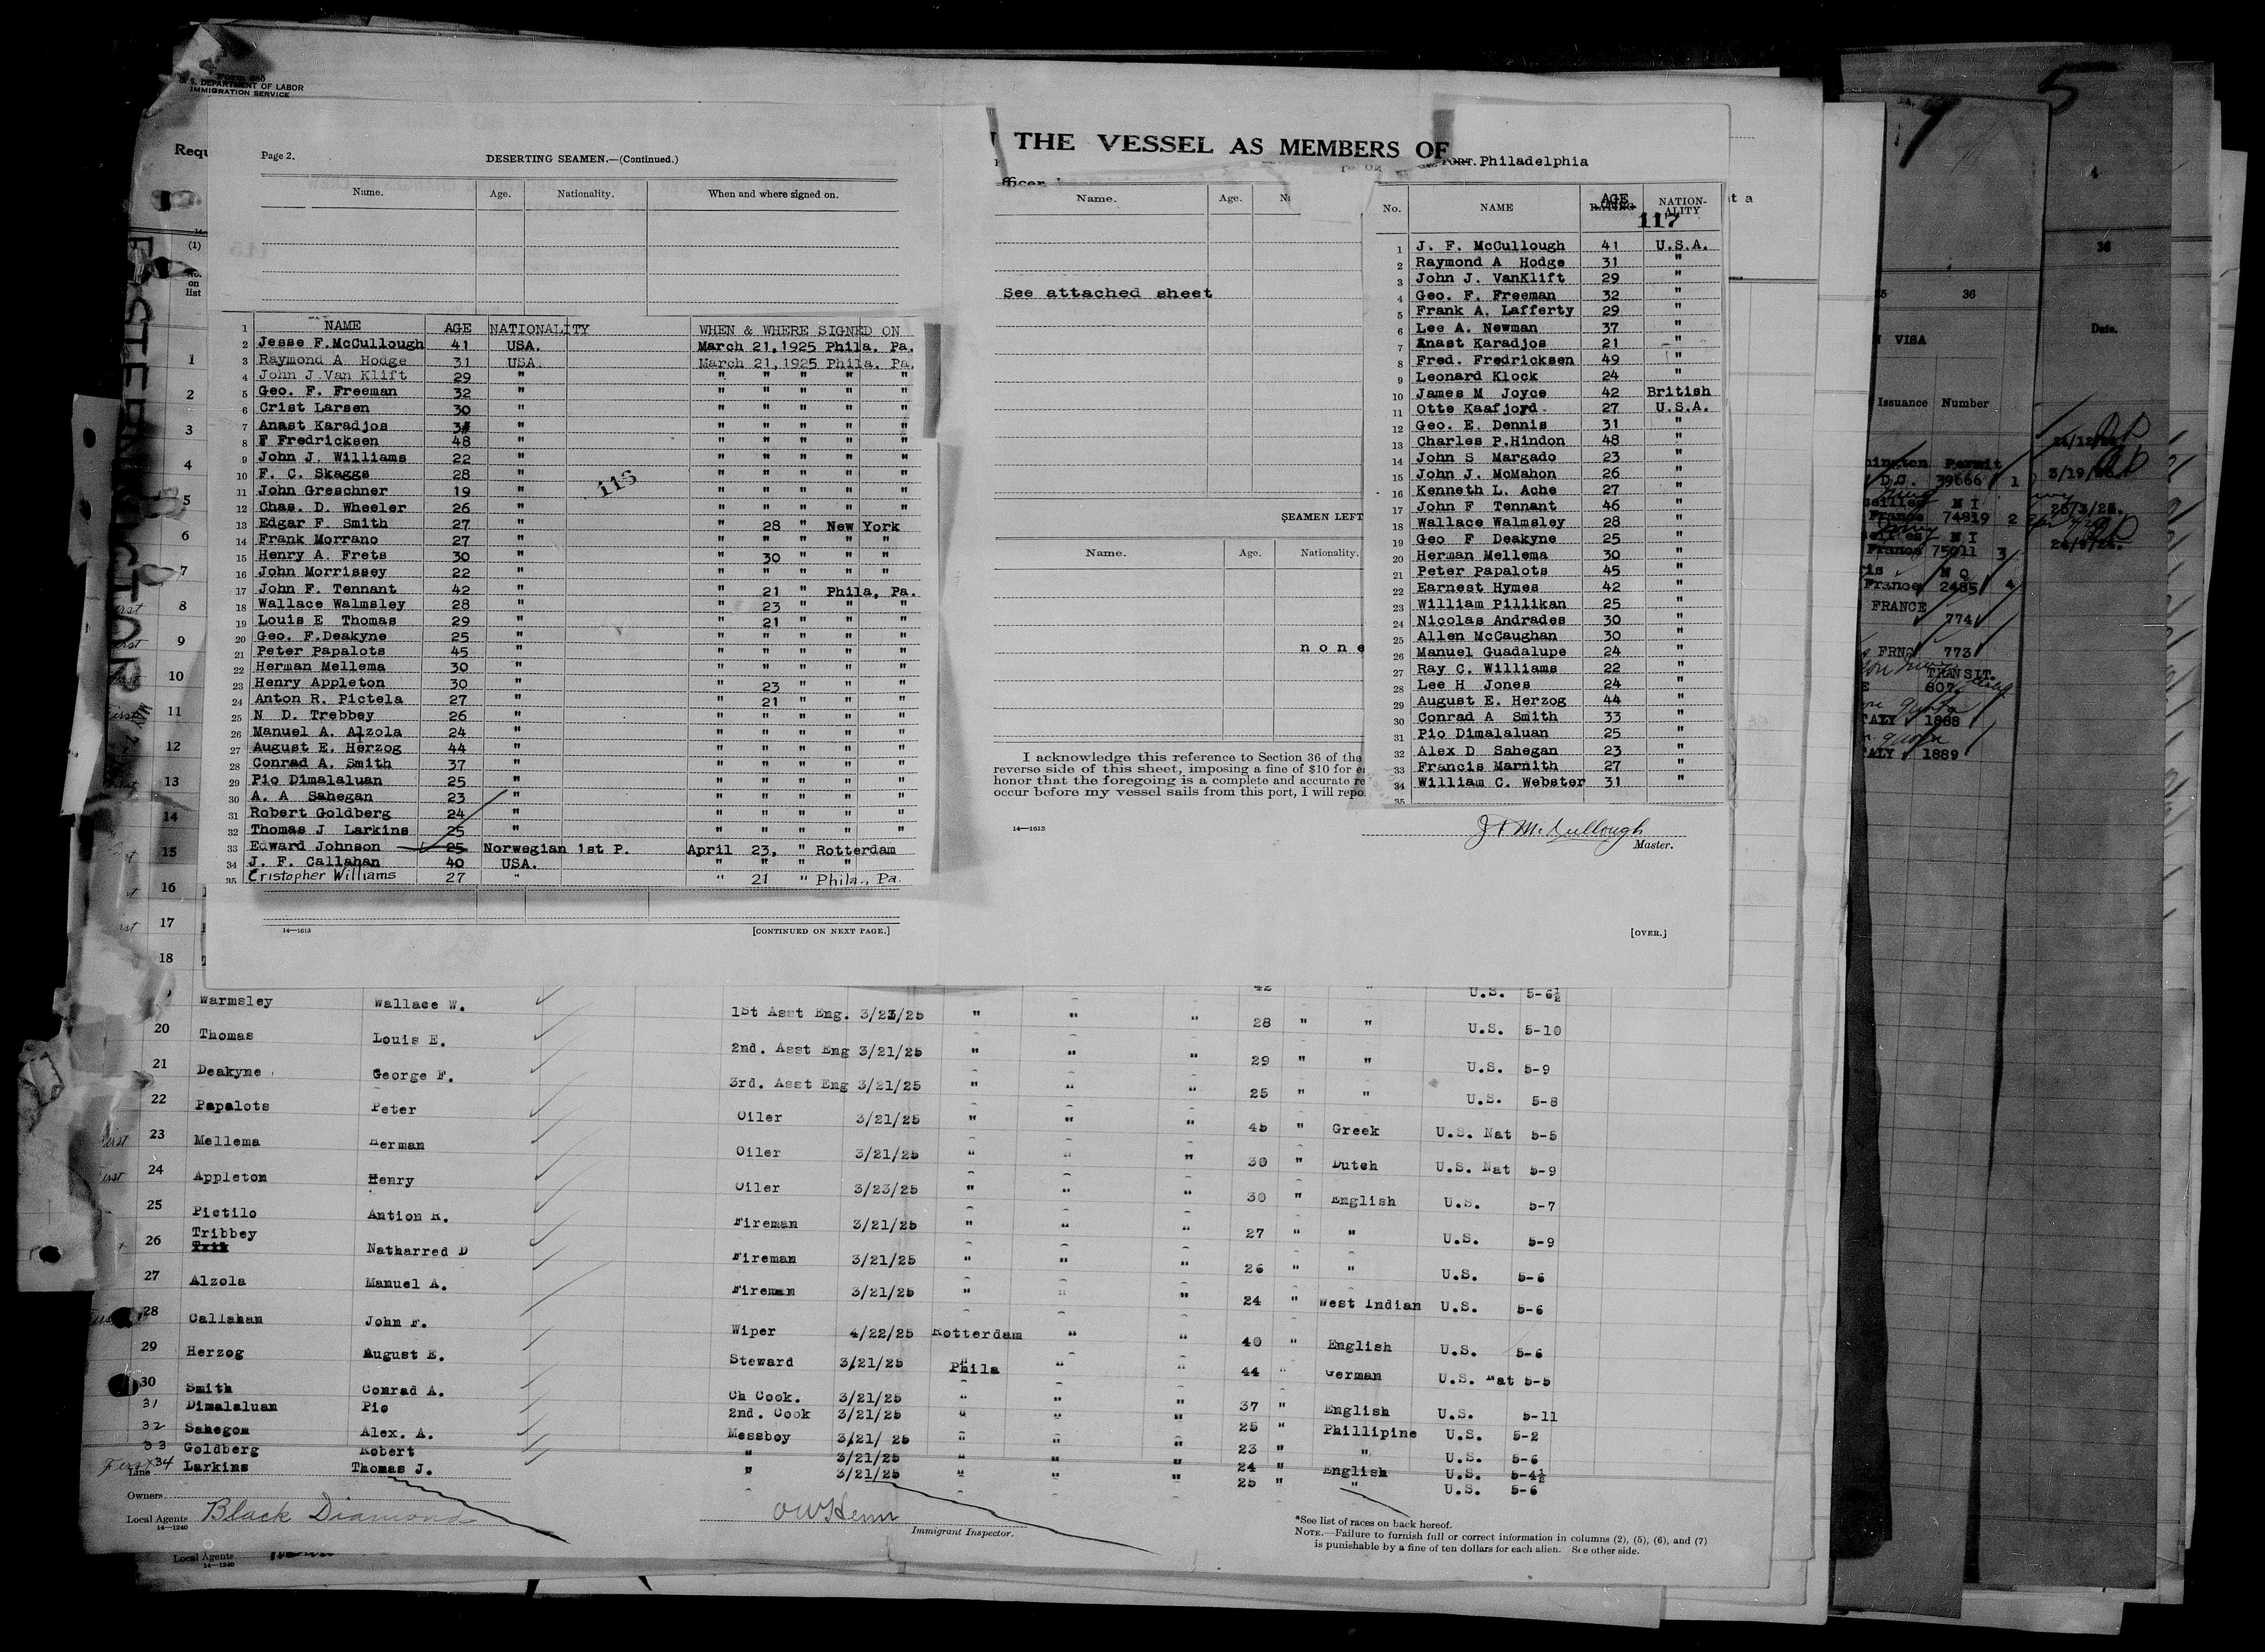 U. S. DEPARTMENT OF LABOR
IMMIGRATION SERVICE
Page 2.
DESERTING SEAMEN.—(Continued.)
Name. Age. Nationality. When and where signed on.
1 NAME AGE NATIONALITY WHEN & WHERE SIGNED ON
2 Jesse F.McCullough 41 USA. March 21,1925 Phila. Pa.
3 Raymond A. Hodge 31 USA. March 21,1925 Phila. Pa.
4 John J.Van Klift 29 " " " " " "
5 Geo. F. Freeman 32 " " " " " "
6 Crist Larsen 30 " " " " " "
7 Anast Karadjos " " " " " "
8 F Fredricksen 48 " " " " " "
9 John J. Williams 22 " " " " " "
10 F. C. Skaggs 28 " " " " " "
11 John Greschner 19 " " " " " "
12 Chas. D. Wheeler 26 " " " " " "
13 Edgar F. Smith 27 " " 28 " New York
14 Frank Morrano 27 " " " " " "
15 Henry A. Frets 30 " " 30 " " "
16 John Morrissey 22 " " " " " "
17 John F. Tennant 42 " " 21 " Phila, Pa.
18 Wallace Walmsley 28 " " 23 " " "
19 Louis E Thomas 29 " " 21 " " "
20 Geo. F.Deakyne 25 " " " " " "
21 Peter Papalots 45 " " " " " "
22 Herman Mellema 30 " " " " " "
23 Henry Appleton 30 " " 23 " " "
24 Anton R. Pictela 27 " " 21 " " "
25 N D. Trebbey 26 " " " " " "
26 Manuel A. Alzola 24 " " " " " "
27 August E. Herzog 44 " " " " " "
28 Conrad A. Smith 37 " " " " " "
29 Pio Dimalaluan 25 " " " " " "
30 A. A Sahegan 23 " " " " " "
31 Robert Goldberg 24 " " " " " "
32 Thomas J Larkins 25 " " " " " "
33 Edward Johnson 25 Norwegian 1st P. April 23, " Rotterdam
34 J. F. Callahan 40 USA. " " " "
35 Cristopher Williams 27 " " 21 " Phila., Pa.
14—1613
[CONTINUED ON NEXT PAGE.]
THE VESSEL AS MEMBERS OF
PORT. Philadelphia
Name. Age.
See attached sheet
SEAMEN LEFT
Name. Age. Nationality.
none
I acknowledge this reference to Section 36 of the
reverse side of this sheet, imposing a fine of $10 for
honor that the foregoing is a complete and accurate
occur before my vessel sails from this port, I will
14—1613
J F McCullough
Master.
[OVER.]
No. NAME AGE NATION-
ALITY
117
1 J. F. McCullough 41 U.S.A.
2 Raymond A Hodge 31 "
3 John J. VanKlift 29 "
4 Geo. F. Freeman 32 "
5 Frank A. Lafferty 29 "
6 Lee A. Newman 37 "
7 Anast Karadjos 21 "
8 Fred. Fredricksen 49 "
9 Leonard Klock 24 "
10 James M Joyce 42 British
11 Otte Kaafjord 27 U.S.A.
12 Geo. E. Dennis 31 "
13 Charles P.Hindon 48 "
14 John S Margado 23 "
15 John J. McMahon 26 "
16 Kenneth L. Ache 27 "
17 John F Tennant 46 "
18 Wallace Walmsley 28 "
19 Geo F Deakyne 25 "
20 Herman Mellema 30 "
21 Peter Papalots 45 "
22 Earnest Hymes 42 "
23 William Pillikan 25 "
24 Nicolas Andrades 30 "
25 Allen McCaughan 30 "
26 Manuel Guadalupe 24 "
27 Ray C. Williams 22 "
28 Lee H Jones 24 "
29 August E. Herzog 44 "
30 Conrad A Smith 33 "
31 Pio Dimalaluan 25 "
32 Alex D Sahegan 23 "
33 Francis Marnith 27 "
34 William C. Webster 31 "
35
(1)
No.
on
list
1
2
3
4
5
6
7
8
9
10
11
12
13
14
15
16
17
18
42 " U.S. 5-6½
Warmsley Wallace W. 1St Asst Eng. 3/23/25 " " " 28 " " U.S. 5-10
20 Thomas Louis E. 2nd. Asst Eng 3/21/25 " " " 29 " " U.S. 5-9
21 Deakyne George F. 3rd. Asst Eng 3/21/25 " " " 25 " " U.S. 5-8
22 Papalots Peter Oiler 3/21/25 " " " 45 " Greek U.S. Nat 5-5
23 Mellema Herman Oiler 3/21/25 " " " 30 " Dutch U.S. Nat 5-9
24 Appleton Henry Oiler 3/23/25 " " " 30 " English U.S. 5-7
25 Pictilo Antion R. Fireman 3/21/25 " " " 27 " " U.S. 5-9
26 Tribbey Natharred D Fireman 3/21/25 " " " 26 " " U.S. 5-6
27 Alzola Manuel A. Fireman 3/21/25 " " " 24 " West Indian U.S. 5-6
28 Callahan John F. Wiper 4/22/25 Rotterdam " " 40 " English U.S. 5-6
29 Herzog August E. Steward 3/21/25 Phila " " 44 " German U.S. Nat 5-5
30 Smith Conrad A. Ch Cook. 3/21/25 " " " 37 " English U.S. 5-11
31 Dimalaluan Pio 2nd. Cook 3/21/25 " " " 25 " Phillipine U.S. 5-2
32 Sahegon Alex. A. Messboy 3/21/ 25 " " " 23 " " U.S. 5-6
33 Goldberg Robert " 3/21/25 " " " 24 " English U.S. 5-4½
First 34 Larkins Thomas J. " 3/21/25 " " " 25 " " U.S. 5-6
Line
Owners
Local Agents Black Diamond
14—1240
Immigrant Inspector.
*See list of races on back hereof.
NOTE.—Failure to furnish full or correct information in columns (2), (5), (6), and (7)
is punishable by a fine of ten dollars for each alien. See other side.
Local Agents
14—1240
5
4
36
36
VISA
Date.
Issuance Number
Permit
D.C. 39666 1 3/19/
N I
France 74819 2
N I
France 75011 3
France 2485 4
FRANCE
774
FRNC 773
TRANSIT.
807
1888
1889